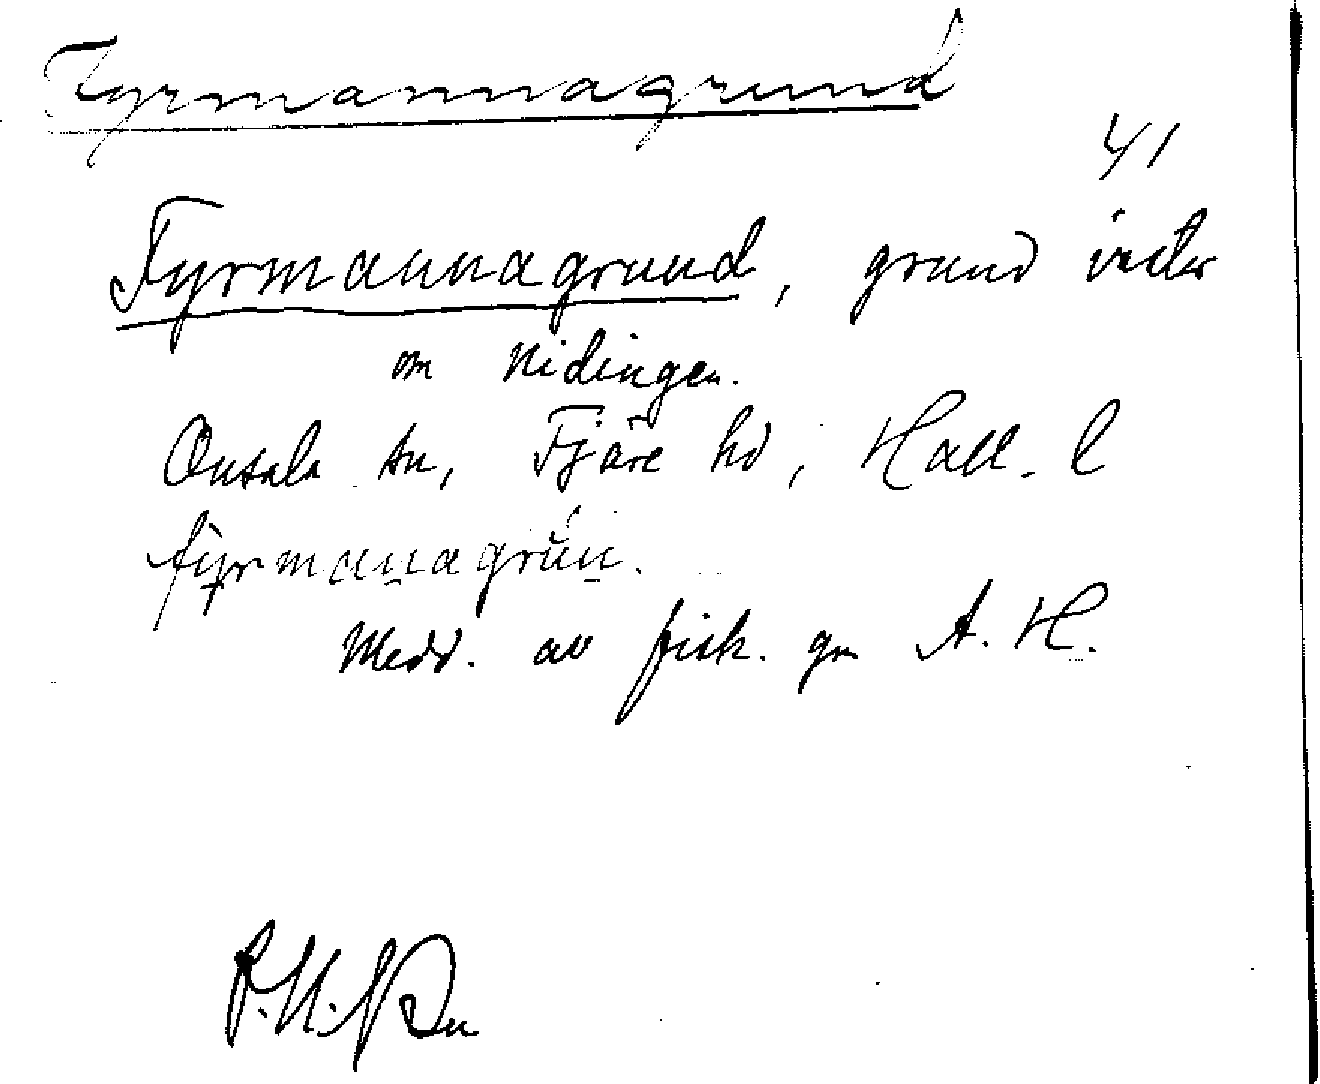 Fyrmannagrund
41
Fyrmannagrund, grund
om Nidingen.
Onsala sn, Fjäre hd, Hall. l
fyrmanagrun.
Medd. av fisk. gm A. H.